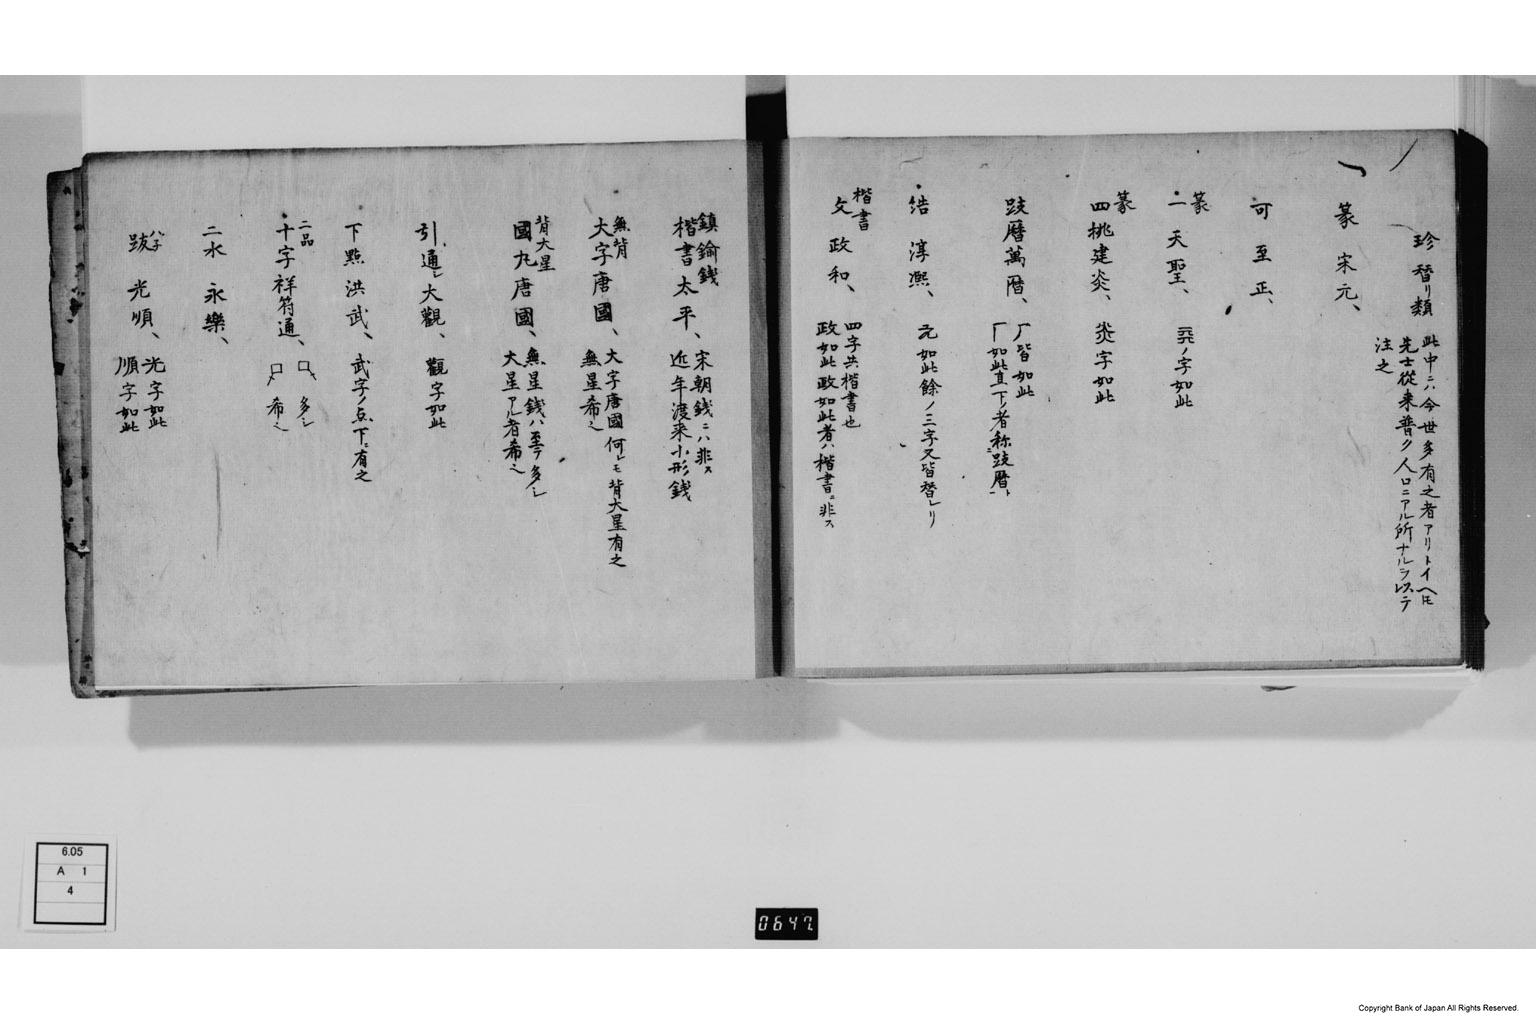 珍替り類
此中ニハ今世多有之者アリトイヘ𪜈
先士從来普ク人口ニアル所ナルヲ以テ
注之
篆宋元、
可至正、
篆
一天聖、
ノ字如此
篆
四挑建炎、
炎字如此
跂暦萬暦、
厂皆如此
厂如此真下ノ者称跂暦ト
浩淳熈、
元如此餘ノ三字又皆替レリ
楷書
文政和、
四字共楷書也
政如此政如此者ハ楷書ニ非ス
鎮鍮銭
楷書太平、
宋朝銭ニハ非ス
近年渡来小形銭
無背
大字唐國、
大字唐國何レモ背大星有之
無星希之
背大星
國九唐國、
無星銭ハ至テ多シ
大星アル者希之
引通シ大觀、
觀字如此
下點洪武、
武字ノ点下ニ有之
二品
十字祥符通、
多シ
希之
二水永樂、
ハネ
跋光順、
光字如此
順字如此
6.05
A 1
4
0647
Copyright Bank of Japan All Rights Reserved.